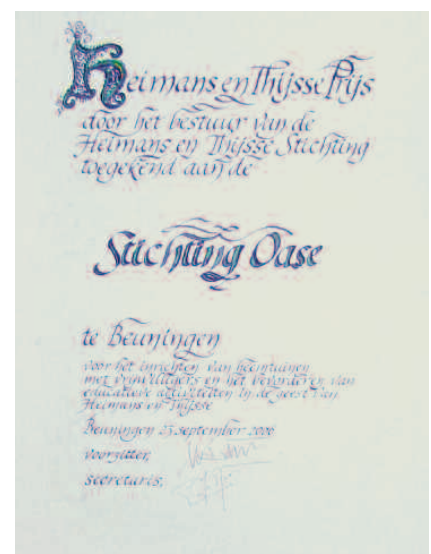 Heimans en Thijsse Prijs
door het bestuur van de
Heimans en Thijsse Stichting
toegekend aan de
Stichting Oase
te Beuningen
voor het inrichten van heemtuinen
met vrijwilligers en het bevorderen van
educatieve activiteiten in de geest van
Heimans en Thijsse
Beuningen 23 september 2006
voorzitter,
secretaris,